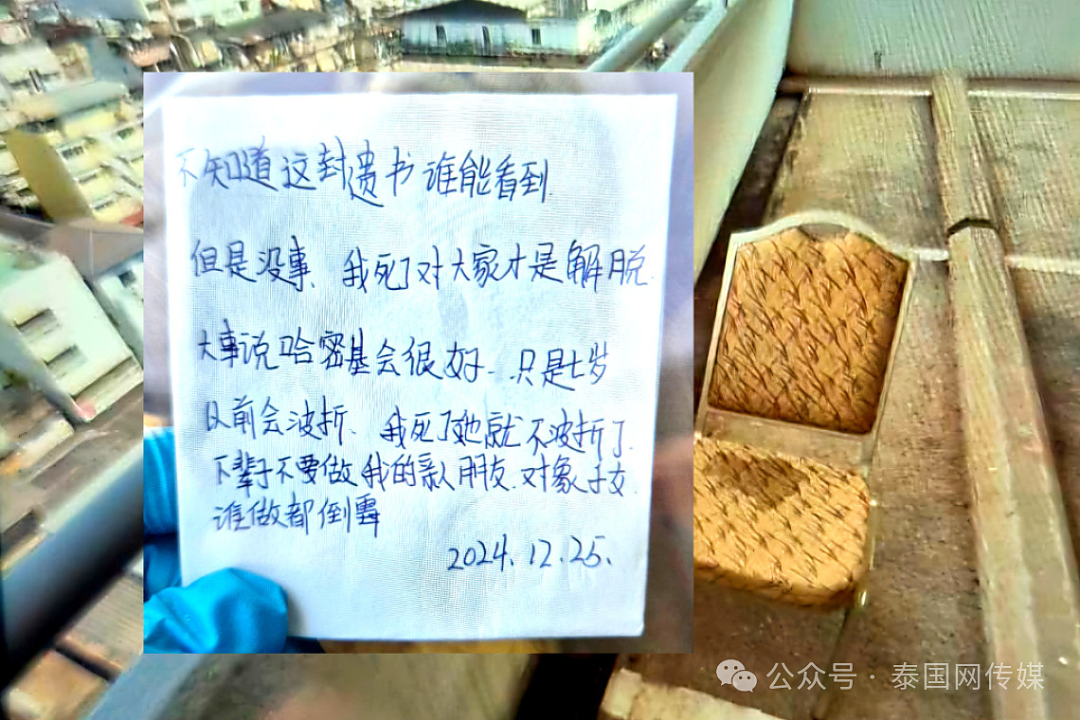 不知道这封遗书谁能看到.
但是没事、我死了对大家才是解脱.
大事说哈密基会很好、只是七岁
以前会波折、我死了她就不波折了.
下辈子不要做我的亲人朋友.对象子女.
谁做都倒霉
2024.12.25.
公众号·泰国网传媒